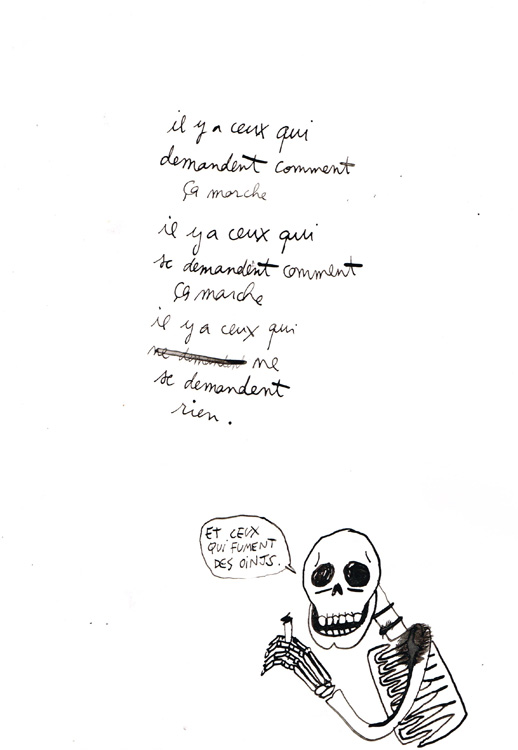 il y a ceux qui
demandent comment
ça marche
il y a ceux qui
se demandent comment
ça marche
il y a ceux qui
ne demandent ne
se demandent
rien.
ET CEUX
QUI FUMENT
DES OINJS.